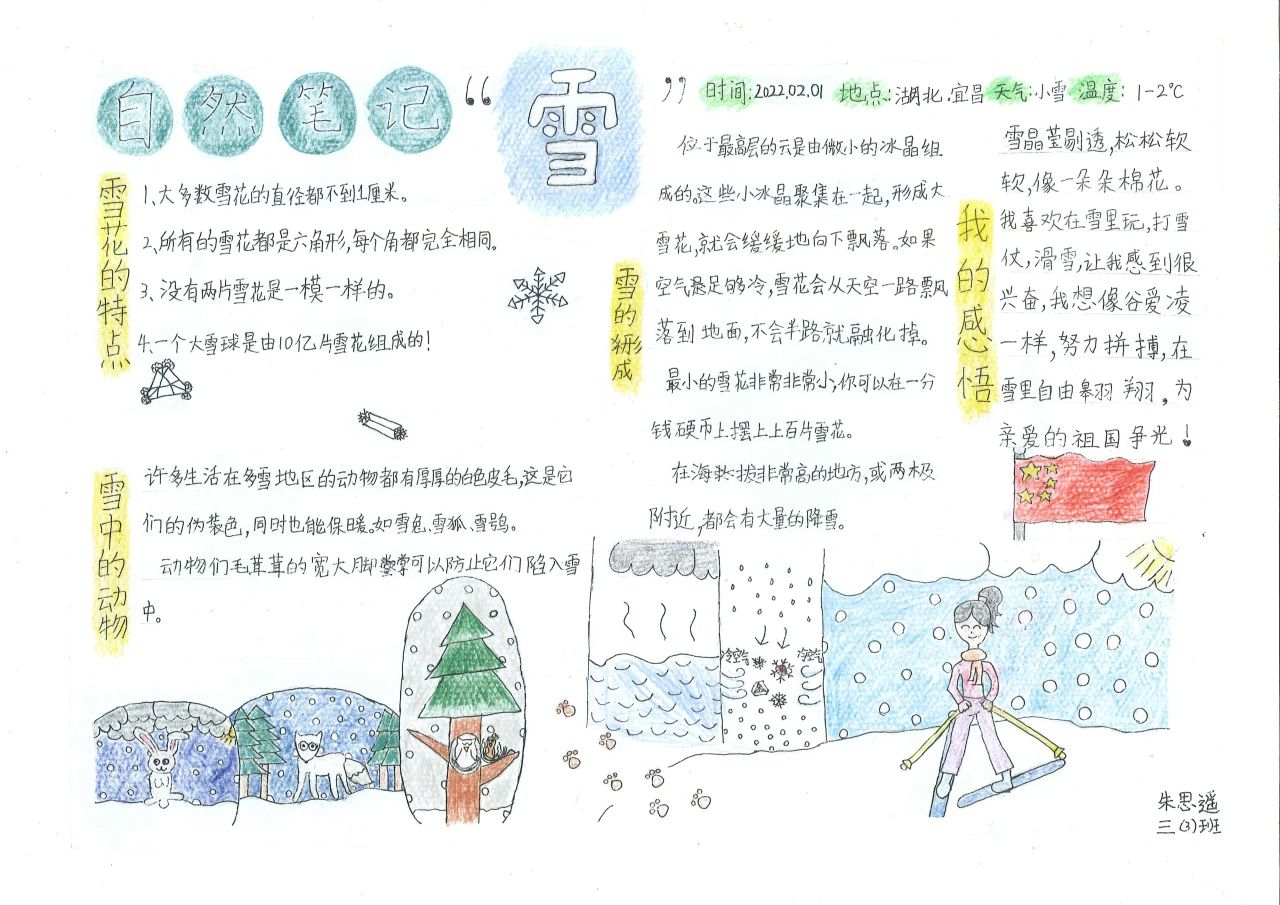 自然笔记“雪”
时间:2022.02.01 地点:湖北.宜昌 天气:小雪 温度:1-2℃
雪花的特点
1、大多数雪花的直径都不到1厘米。
2、所有的雪花都是六角形,每个角都完全相同。
3、没有两片雪花是一模一样的。
4、一个大雪球是由10亿片雪花组成的!
雪中的动物
许多生活在多雪地区的动物都有厚厚的白色皮毛,这是它
们的伪装色,同时也能保暖。如雪兔、雪狐、雪鸮。
动物们毛茸茸的宽大脚掌可以防止它们陷入雪
中。
雪的形成
位于最高层的云是由微小的冰晶组
成的。这些小冰晶聚集在一起,形成大
雪花,就会缓缓地向下飘落。如果
空气是足够冷,雪花会从天空一路飘
落到地面,不会半路就融化掉。
最小的雪花非常非常小,你可以在一分
钱硬币上摆上上百片雪花。
在海拔非常高的地方,或两极
附近,都会有大量的降雪。
冷空气
冷空气
我的感悟
雪晶莹剔透,松松软
软,像一朵朵棉花。
我喜欢在雪里玩,打雪
仗,滑雪,让我感到很
兴奋,我想像谷爱凌
一样,努力拼搏,在
雪里自由翱翔,为
亲爱的祖国争光!
朱思遥
三(3)班